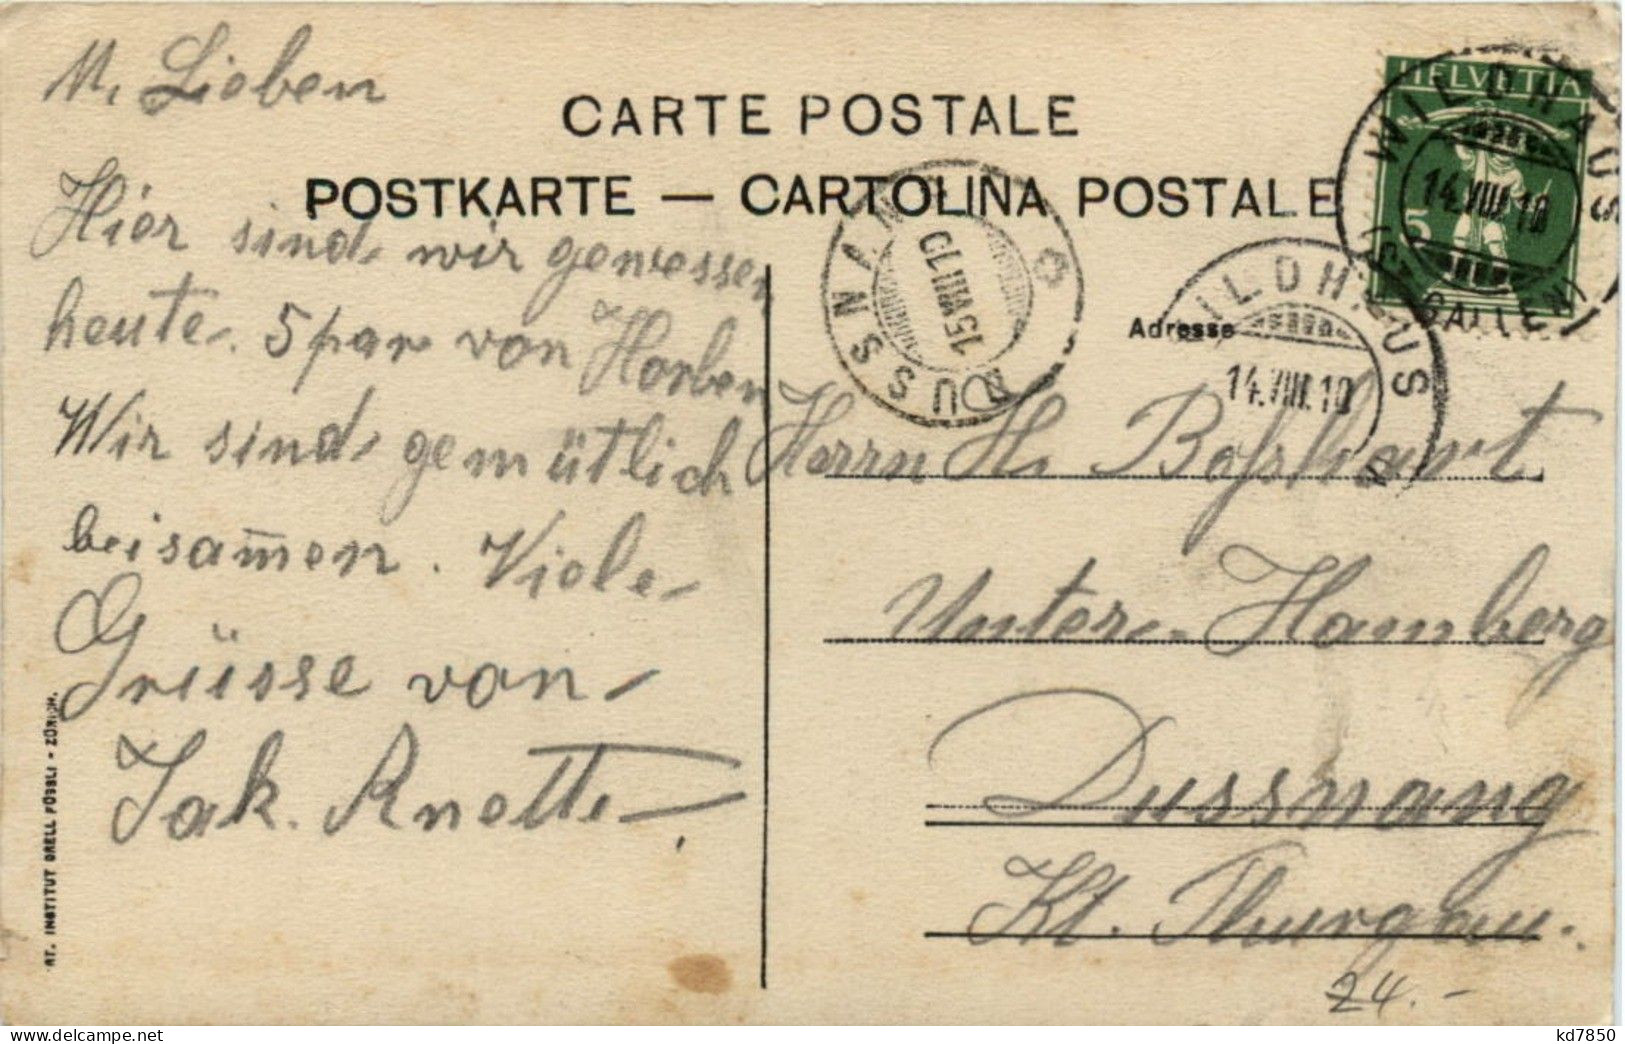 M. Lieben
CARTE POSTALE
POSTKARTE — CARTOLINA POSTALE
Hier sind wir gewessen
heute. 5 par von Horben
Wir sind gemütlich
beisam̅en. Viele
Grüsse von
Jak. Anette.
HELVETIA
5
WILDHAUS
14.VIII.10
(ST. GALLEN)
WILDHAUS
14.VIII.10
DUSSNANG
15.VIII.10
Adresse
Herrn H. Bosshart
Unter-Hamberg
Dussnang
Kt. Thurgau.
24.-
ART. INSTITUT ORELL FÜSSLI - ZÜRICH.
kd7850